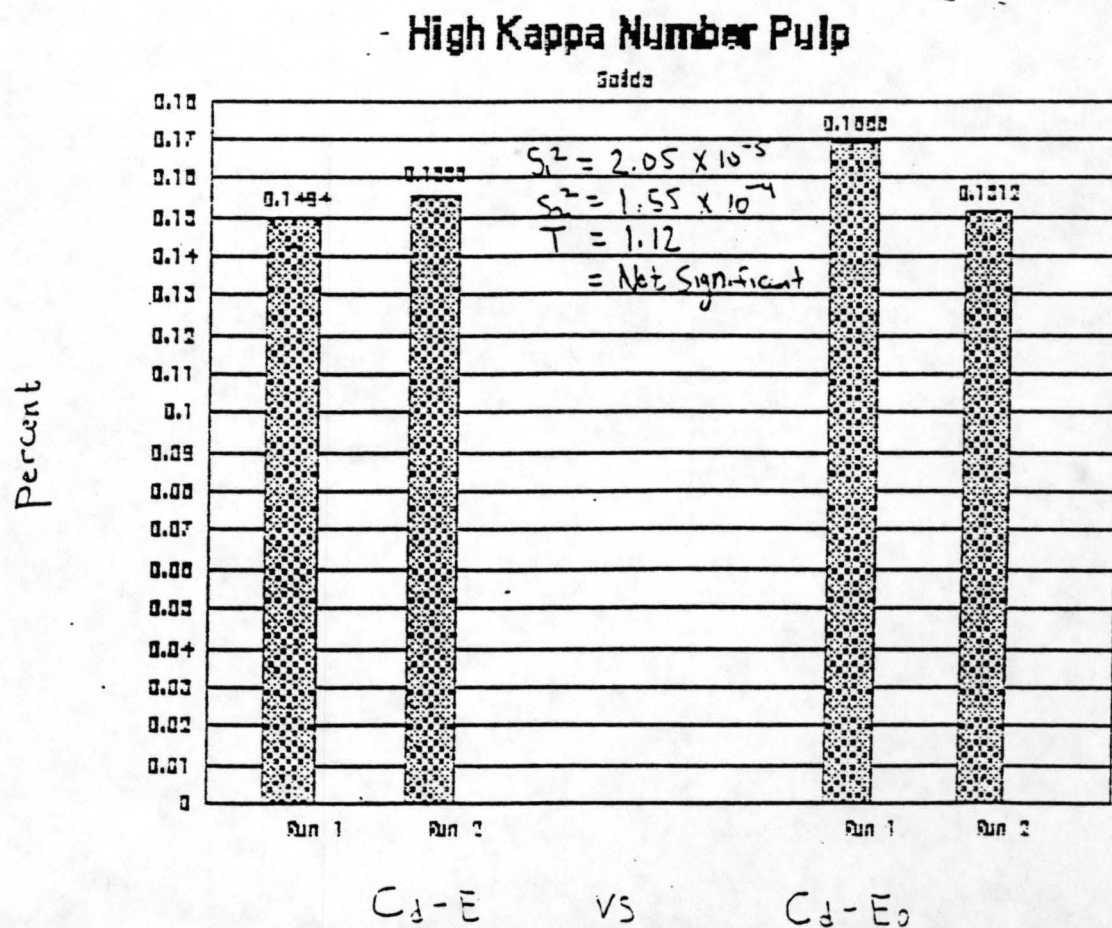 High Kappa Number Pulp
0.18
0.17
0.16
0.15
0.14
0.13
0.12
0.11
0.1
0.09
0.08
0.07
0.06
0.05
0.04
0.03
0.02
0.01
0
Percent
0.1494
0.1512
S₁² = 2.05 x 10⁻⁵
S₂² = 1.55 x 10⁻⁴
T = 1.12
= Not Significant
Run 1
Run 2
Run 1
Run 2
Cd-E vs Cd-Eo